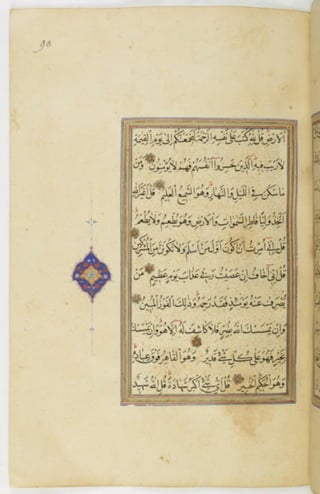 90
الارض قل لله كتب على نفسه الرحمة ليجمعنكم الى يوم القيمة
لا ريب فيه الذين خسروا انفسهم فهم لا يؤمنون وله
ما سكن في الليل والنهار وهو السميع العليم قل اغير الله
اتخذ وليا فاطر السموات والارض وهو يطعم ولا يطعم
قل اني امرت ان اكون اول من اسلم ولا تكونن من المشركين
قل اني اخاف ان عصيت ربي عذاب يوم عظيم من
يصرف عنه يومئذ فقد رحمه وذلك الفوز المبين
وان يمسسك الله بضر فلا كاشف له الا هو وان يمسسك
بخير فهو على كل شيء قدير وهو القاهر فوق عباده
وهو الحكيم الخبير قل اي شيء اكبر شهادة قل الله شهيد